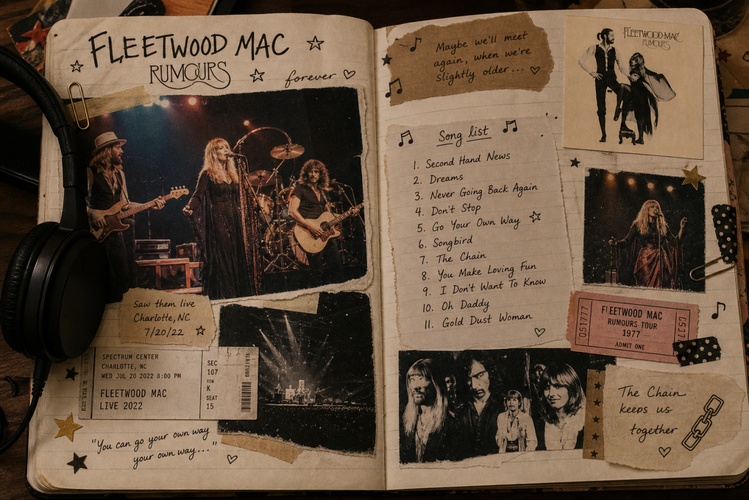 FLEETWOOD MAC
RUMOURS
forever
saw them live
Charlotte, NC
7/20/22
SPECTRUM CENTER
CHARLOTTE, NC
WED JUL 20 2022 8:00 PM
FLEETWOOD MAC
LIVE 2022
SEC
107
ROW
K
SEAT
15
"You can go your own way
your own way..."
Maybe we'll meet
again, when we're
slightly older...
FLEETWOOD MAC
RUMOURS
Song list
1. Second Hand News
2. Dreams
3. Never Going Back Again
4. Don't Stop
5. Go Your Own Way
6. Songbird
7. The Chain
8. You Make Loving Fun
9. I Don't Want To Know
10. Oh Daddy
11. Gold Dust Woman
FLEETWOOD MAC
RUMOURS TOUR
1977
ADMIT ONE
The Chain
keeps us
together